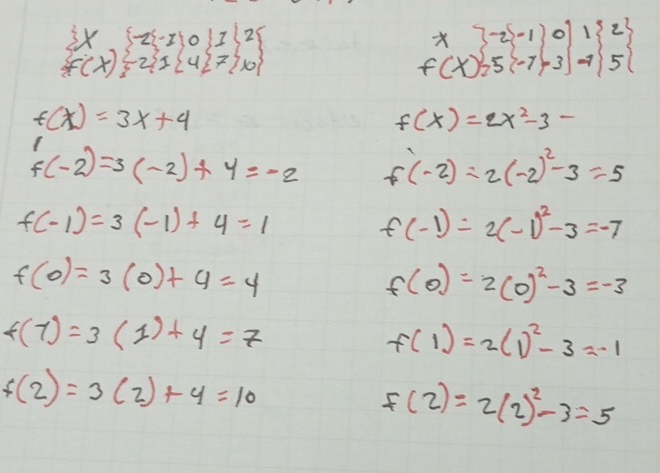 x {-2{-1}0}1}2{
f(x) {-2}1{4}7}10}
f(x) = 3x+4
f(-2)=3(-2)+4=-2
f(-1)=3(-1)+4=1
f(0)=3(0)+4=4
f(1)=3(1)+4=7
f(2)=3(2)+4=10
x }-2{-1}0}1{2}
f(x) 5{-7}-3]-1}5}
f(x)=2x²-3-
f(-2)=2(-2)²-3=5
f(-1)=2(-1)²-3=-7
f(0)=2(0)²-3=-3
f(1)=2(1)²-3=-1
f(2)=2(2)²-3=5